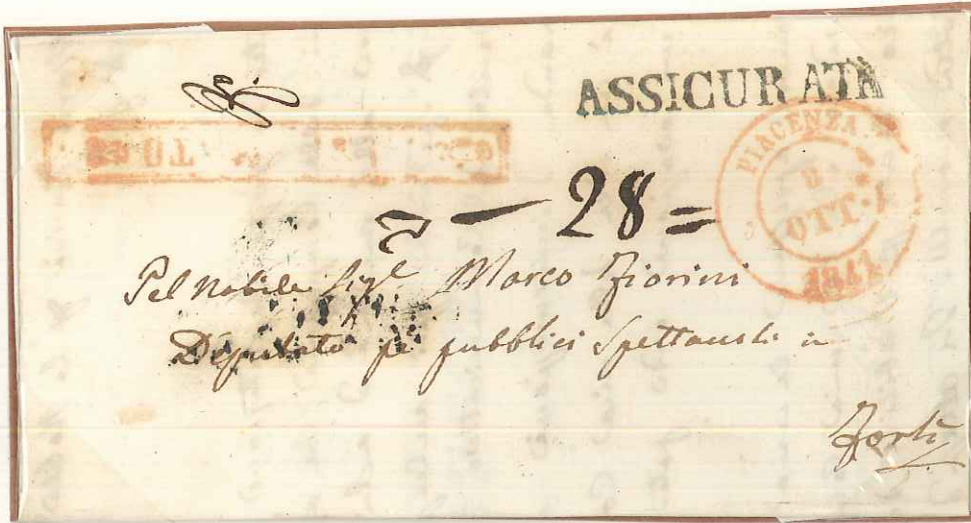 ASSICURATA
PIACENZA
8
OTT.
1841
— 28 =
Pel Nobile Sigr. Marco Fiorini
Deputato pei pubblici Spettacoli in
Forlì